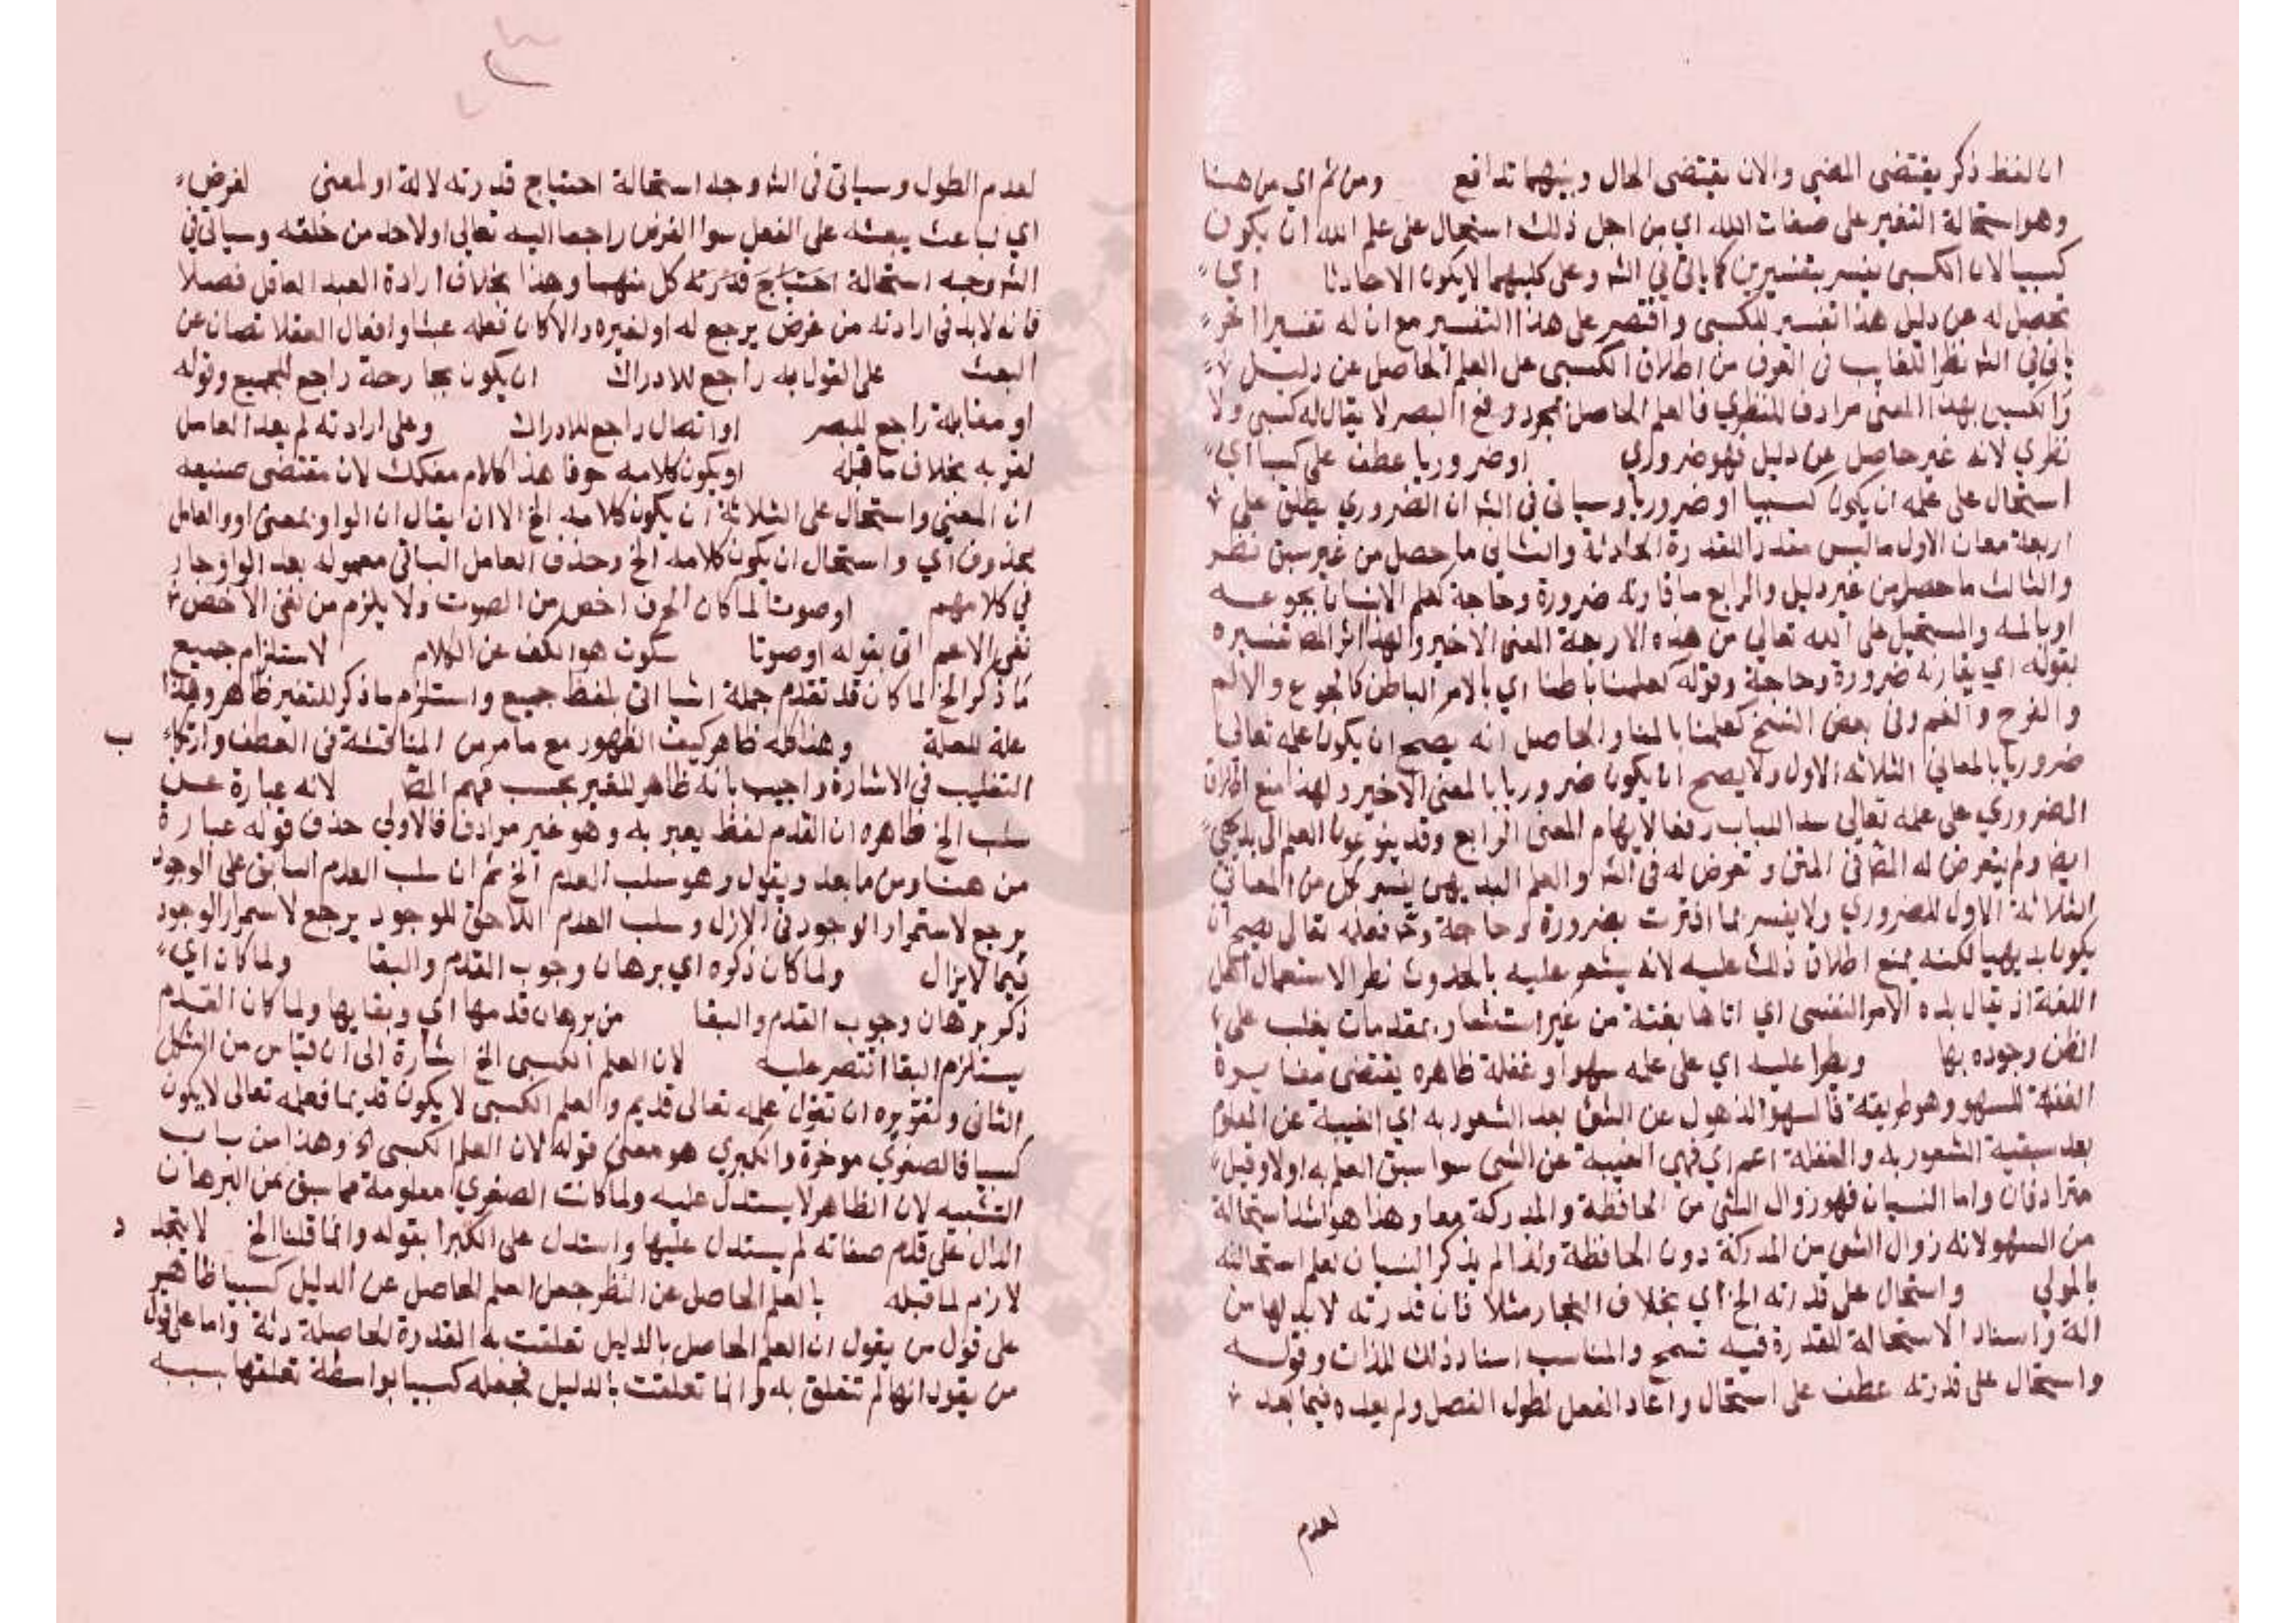 ان لفظ ذكر يقتضي المضي والان يقتضي الحال وبينهما تدافع ومن ثم اي من هنا
وهو استحالة التغير على صفات الله اي من اجل ذلك استحال على علم الله ان يكون
كسبيا لان الكسبي يفسر بتفسيرين كما ياتي في الشه وعلى كليهما لا يكون الا حادثا اي
يحصل له عن دليل هذا تفسير للكسبي واقتصر على هذا التفسير مع ان له تفسيرا اخر
ياتي في الشه نظرا للغايب في العرف من اطلاق الكسبي على العلم الحاصل عن دليل
والكسبي بهذا المعنى مرادف للنظري فالعلم الحاصل بمجرد وقع البصر لا يقال له كسبي ولا
نظري لانه غير حاصل عن دليل فهو ضروري او ضروريا عطف على كسبيا اي
استحال على علمه ان يكون كسبيا او ضروريا وسياتي في الشه ان الضروري يطلق على
اربعة معان الاول ما ليس مقدورا للقدرة الحادثة والثاني ما حصل من غير سبق نظر
والثالث ما حصل من غير دليل والرابع ما قارنه ضرورة وحاجة كعلم الانسان بجوعه
او بالمه والمستحيل على الله تعالى من هذه الاربعة المعنى الاخير ولهذا المص تفسيره
بقوله اي يقارنه ضرورة وحاجة وقوله كعلمنا باطنا اي بالامر الباطن كالجوع والالم
والفرح والغم وفي بعض النسخ كعلمنا بالمنا والحاصل انه يصح ان يكون علمه تعالى
ضروريا بالمعاني الثلاثة الاول ولا يصح ان يكون ضروريا بالمعنى الاخير ولهذا منع اطلاق
الضروري على علمه تعالى سدا للباب رفعا لايهام المعنى الرابع وقد ينوعون العلم الى بديهي
ايضا ولم يتعرض له المص في المتن وتعرض له في الشه والعلم البديهي يفسر بكل من المعاني
الثلاثة الاول للضروري ولا يفسر بما اقترنت بضرورة وحاجة فعلمه تعالى يصح ان
يكون بديهيا لكنه يمنع اطلاق ذلك عليه لانه يشعر عليه بالحدوث نظرا لاستعمال اهل
اللغة اذ يقال بده الامر النفس اي اتاها بغتة من غير استشعار بمقدمات يغلب على
الظن وجوده بها ويطرا عليه اي على علمه سهوا وغفلة ظاهره يقتضي مغايرة
الغفلة للسهو وهو طريقة فالسهو الذهول عن الشئ بعد الشعور به اي الغيبة عن المعلوم
بعد سبقية الشعور به والغفلة اعم اي فهي الغيبة عن الشئ سوا سبق العلم به اولا وقيل
مترادفان واما النسيان فهو زوال الشئ من الحافظة والمدركة معا وهذا هو اشد استحالة
من السهو لانه زوال الشئ من المدركة دون الحافظة ولذا لم يذكر النسيان لعلم استحالته
بالاولى واستحال على قدرته الخ اي بخلاف النجار مثلا فان قدرته لابد لها من
الة واسناد الاستحالة للقدرة فيه تسمح والمناسب اسناد ذلك للذات وقوله
واستحال على قدرته عطف على استحال واعاد الفعل لطول الفصل ولم يعده فيما بعد
لعدم
لعدم الطول وسياتي في الشه وجه استحالة احتياج قدرته لالة او لمعنى لغرض
اي لباعث يبعثه على الفعل سوا الغرض راجعا اليه تعالى او لاحد من خلقه وسياتي في
الشه وجه استحالة احتياج قدرته كل منهما وهذا بخلاف ارادة العبد العاقل فضلا
فانه لابد في ارادته من غرض يرجع له او لغيره والا كان فعله عبثا وافعال العقلا تصان عن
العبث على القول به راجع للادراك ان يكون بجارحة راجع للجميع وقوله
او مقابلة راجع للبصر او اتصال راجع للادراك وعلى ارادته لم يعد العامل
لقربه بخلاف ما قبله او يكون كلامه حرفا هذا كلام مفكك لان مقتضى صنيعه
ان المعنى واستحال على الثلاثة ان يكون كلامه الخ الا ان يقال ان الواو بمعنى او والعامل
محذوف اي واستحال ان يكون كلامه الخ وحذف العامل الباقي معموله بعد الواو جار
في كلامهم او صوتا لما كان الحرف اخص من الصوت ولا يلزم من نفي الاخص
نفي الاعم اتى بقوله او صوتا سكوت هو الكف عن الكلام لاستلزام جميع
ما ذكر الخ لما كان قد تقدم جملة اشيا اتى بلفظ جميع واستلزام ما ذكر للتغير ظاهر وهذا
علة للعلة وهذا كله ظاهر كيف الظهور مع ما مر من المناقشة في العطف وارتكاب
التغليب في الاشارة واجيب بانه ظاهر للغير بحسب فهم المص لانه عبارة عن
سلب الخ ظاهره ان القدم لفظ يعبر به وهو غير مرادف فالاولى حذف قوله عبارة
من هنا ومن ما بعد ويقول وهو سلب العدم الخ ثم ان سلب العدم السابق على الوجود
يرجع لاستمرار الوجود في الازل وسلب العدم اللاحق للوجود يرجع لاستمرار الوجود
فيما لا يزال ولما كان ذكره اي برهان وجوب القدم والبقا ولما كان اي
ذكر برهان وجوب القدم والبقا من برهان قدمها اي وبقايها ولما كان القدم
يستلزم البقا اقتصر عليه لان العلم الكسبي الخ اشارة الى ان قياس من الشكل
الثاني وتقريره ان تقول علمه تعالى قديم والعلم الكسبي لا يكون قديما فعلمه تعالى لا يكون
كسبيا فالصغرى موخرة والكبرى هو معنى قوله لان العلم الكسبي الخ وهذا من باب
التشبيه لان الظاهر لا يستدل عليه ولما كانت الصغرى معلومة مما سبق من البرهان
الدال على قدم صفاته لم يستدل عليها واستدل على الكبرا بقوله وانما قلنا الخ لا يتجدد
لازم لما قبله بالعلم الحاصل عن النظر جعل العلم الحاصل عن الدليل كسبيا ظاهر
على قول من يقول ان العلم الحاصل بالدليل تعلقت به القدرة الحادثة واما على قول
من يقول انها لم تتعلق به وانما تعلقت بالدليل فجعله كسبيا بواسطة تعلقها بسببه